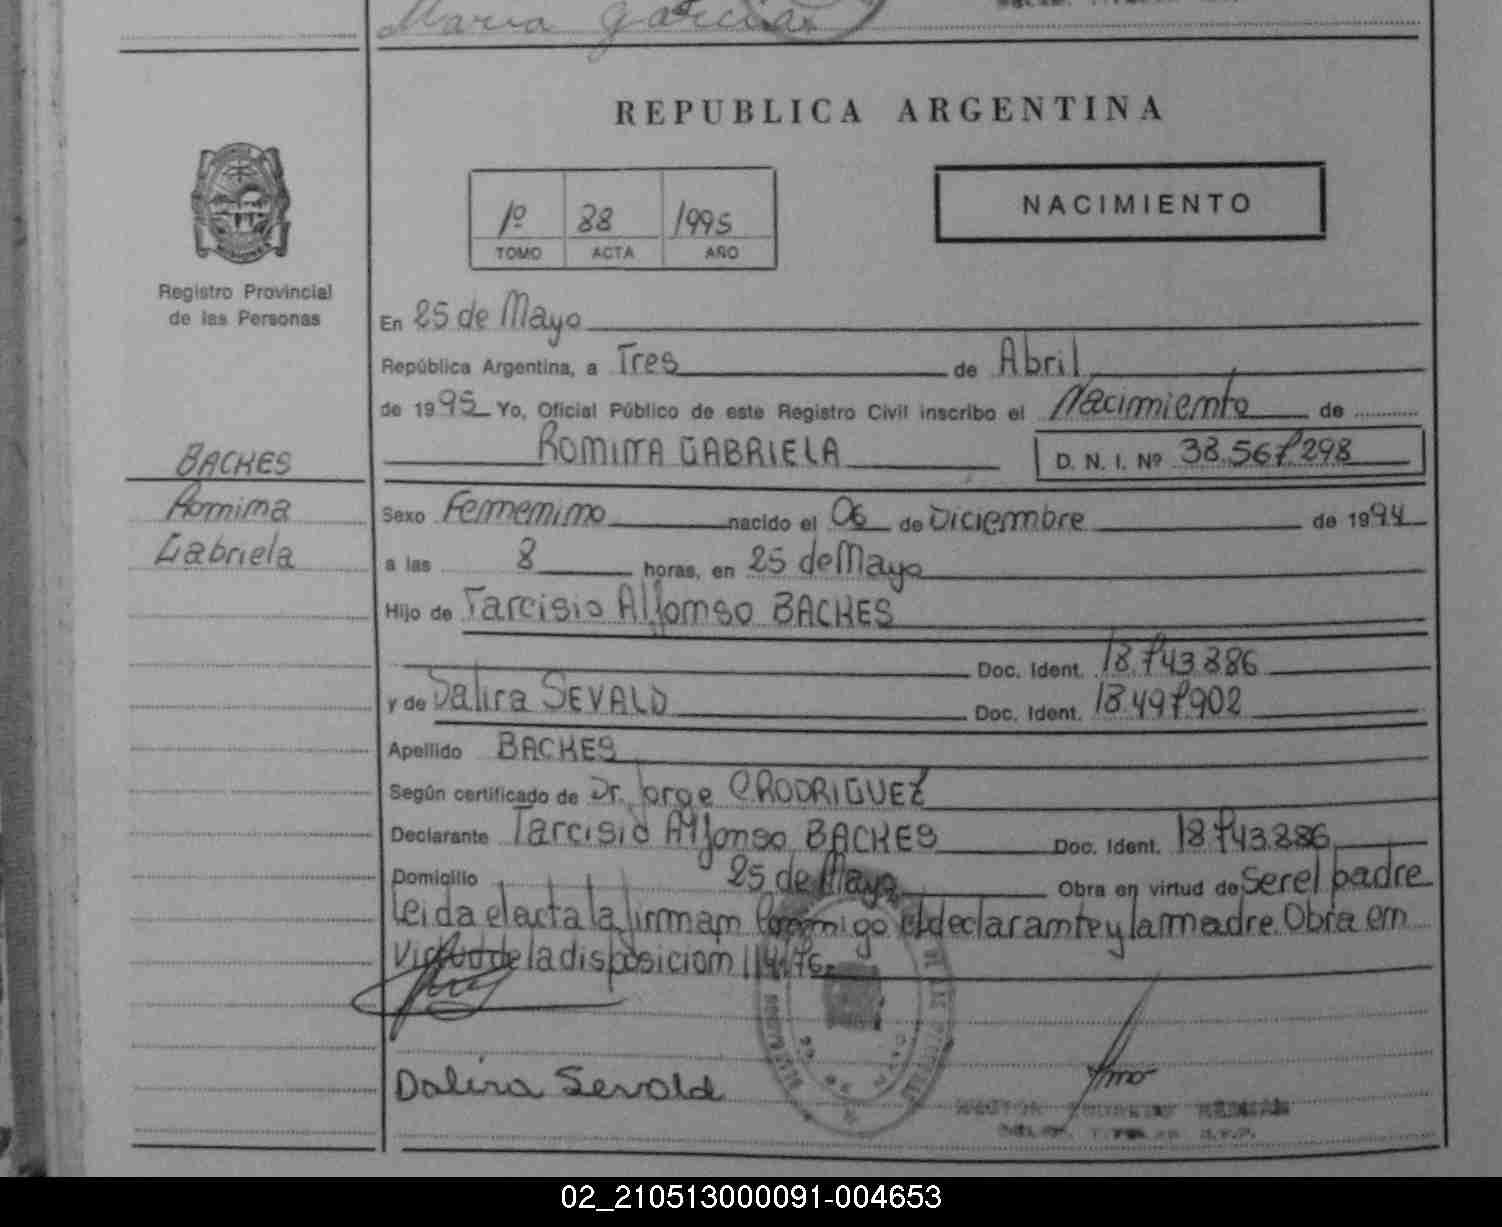 Maria Garcia
REPUBLICA ARGENTINA
1º 88 1995
TOMO ACTA AÑO
NACIMIENTO
Registro Provincial
de las Personas
En 25 de Mayo
República Argentina, a Tres de Abril
de 1995 Yo, Oficial Público de este Registro Civil inscribo el Nacimiento de
ROMINA GABRIELA D. N. I. Nº 38.567298
BACKES
Romina
Gabriela
Sexo Femenino nacido el 06 de Diciembre de 1994
a las 8 horas, en 25 de Mayo
Hijo de Tarcisio Alfonso BACKES
Doc. Ident. 18.743.886
y de Dalira SEVALD Doc. Ident. 18.497902
Apellido BACKES
Según certificado de Dr. Jorge O RODRIGUEZ
Declarante Tarcisio Alfonso BACKES Doc. Ident. 18743.886
Domicilio 25 de Mayo Obra en virtud de Ser el padre
Leida el acta la firman Conmigo el declarante y la madre. Obra en
Virtud de la disposicion 114/76
Dalira Sevald
02_210513000091-004653